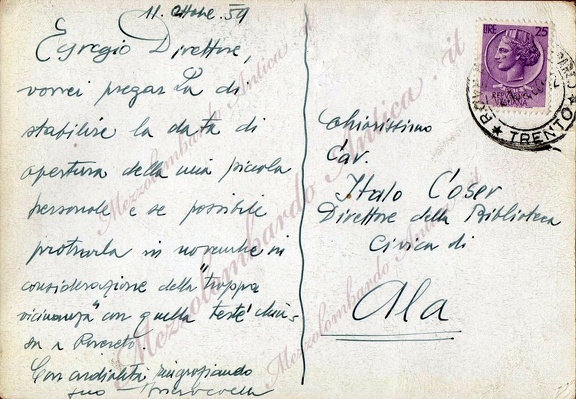 11. Ottobre. 59
Egregio Direttore,
vorrei pregar La di
stabilire la data di
apertura della mia piccola
personale e se possibile
protrarla in novembre in
considerazione della "troppa
vicinanza" con quella testé chiu-
sa a Rovereto.
Con cordialità ringraziando
suo
LIRE 25
REPUBBLICA
ITALIANA
★ TRENTO ★
Chiarissimo
Cav.
Italo Coser
Direttore della Biblioteca
Civica di
Ala
Mezzolombardo Antica . it
Mezzolombardo Antica . it
Mezzolombardo Antica . it